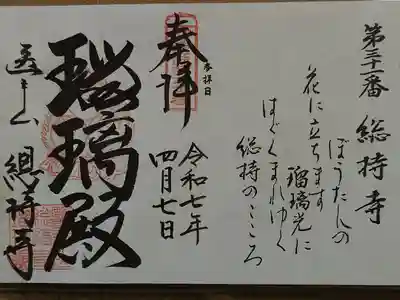 第三十一番 総持寺
ぼうたんの
花に立ちます
瑠璃光に
はぐくまれゆく
総持のこころ
奉拝
参拝日
令和七年
四月七日
瑠璃殿
医王山 總持寺